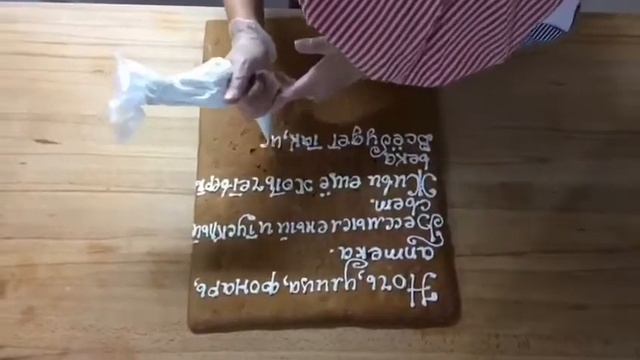 Ночь, улица, фонарь,
аптека.
Бессмысленный и тусклый
свет.
Живи ещё хоть четверть
века
Всё будет так, и